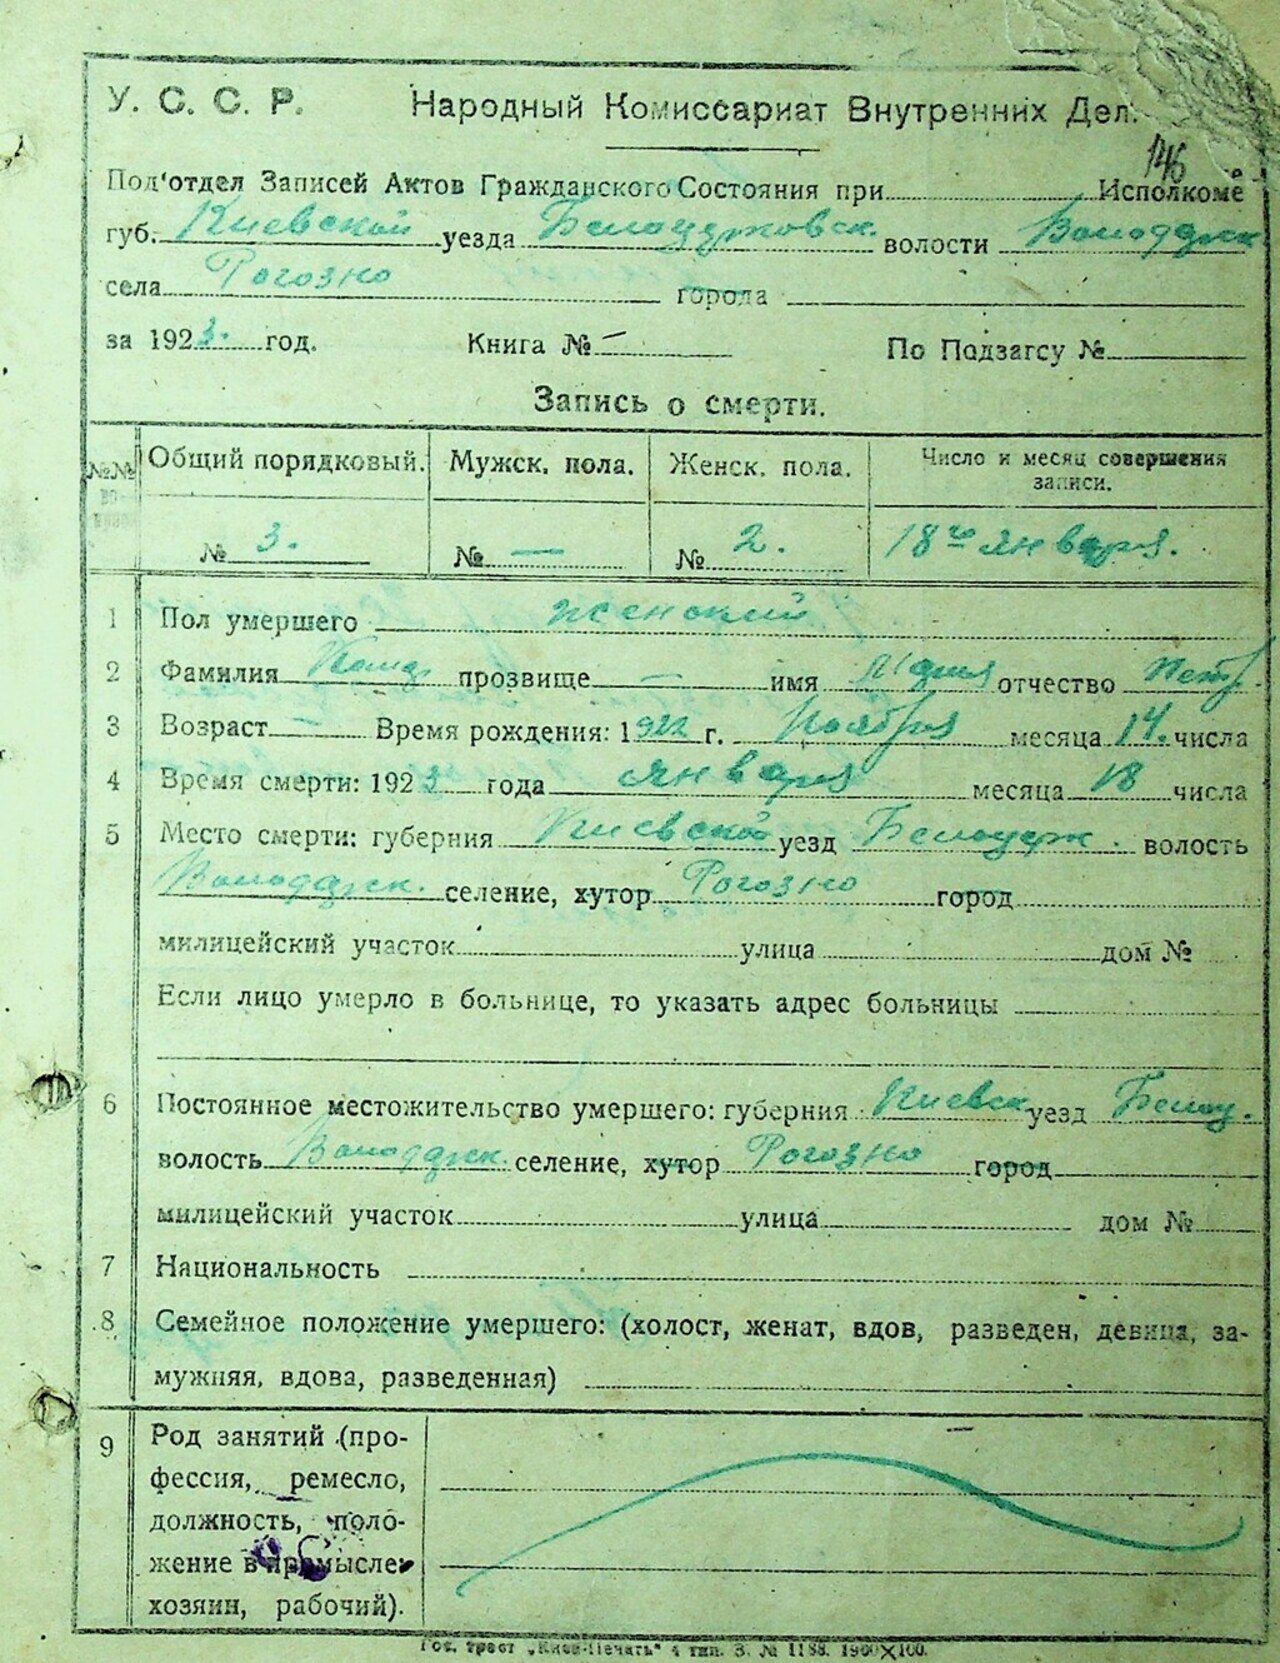 У. С. С. Р. Народный Комиссариат Внутренних Дел.
146
Под'отдел Записей Актов Гражданского Состояния при Исполкоме
губ. Киевской уезда Белоцерковск. волости Володарск
села Рогозно города
за 1923. год. Книга № — По Подзагсу №
Запись о смерти.
№№ Общий порядковый. Мужск. пола. Женск. пола. Число и месяц совершения записи.
№ 3. № — № 2. 18го января.
1 Пол умершего женский
2 Фамилия прозвище — имя Мария отчество Петр
3 Возраст — Время рождения: 1922 г. Ноября месяца 14. числа
4 Время смерти: 1923 года января месяца 18 числа
5 Место смерти: губерния Киевской уезд Белоцерк. волость
Володарск. селение, хутор Рогозно город
милицейский участок улица дом №
Если лицо умерло в больнице, то указать адрес больницы
6 Постоянное местожительство умершего: губерния Киевск уезд Белоц.
волость Володарск. селение, хутор Рогозно город
милицейский участок улица дом №
7 Национальность
8 Семейное положение умершего: (холост, женат, вдов, разведен, девица, за-
мужняя, вдова, разведенная)
9 Род занятий (про-
фессия, ремесло,
должность, поло-
жение в промысле:
хозяин, рабочий).
Гос. трест „Киев-Печать“ 4 тип. З. № 1188. 1900×100.